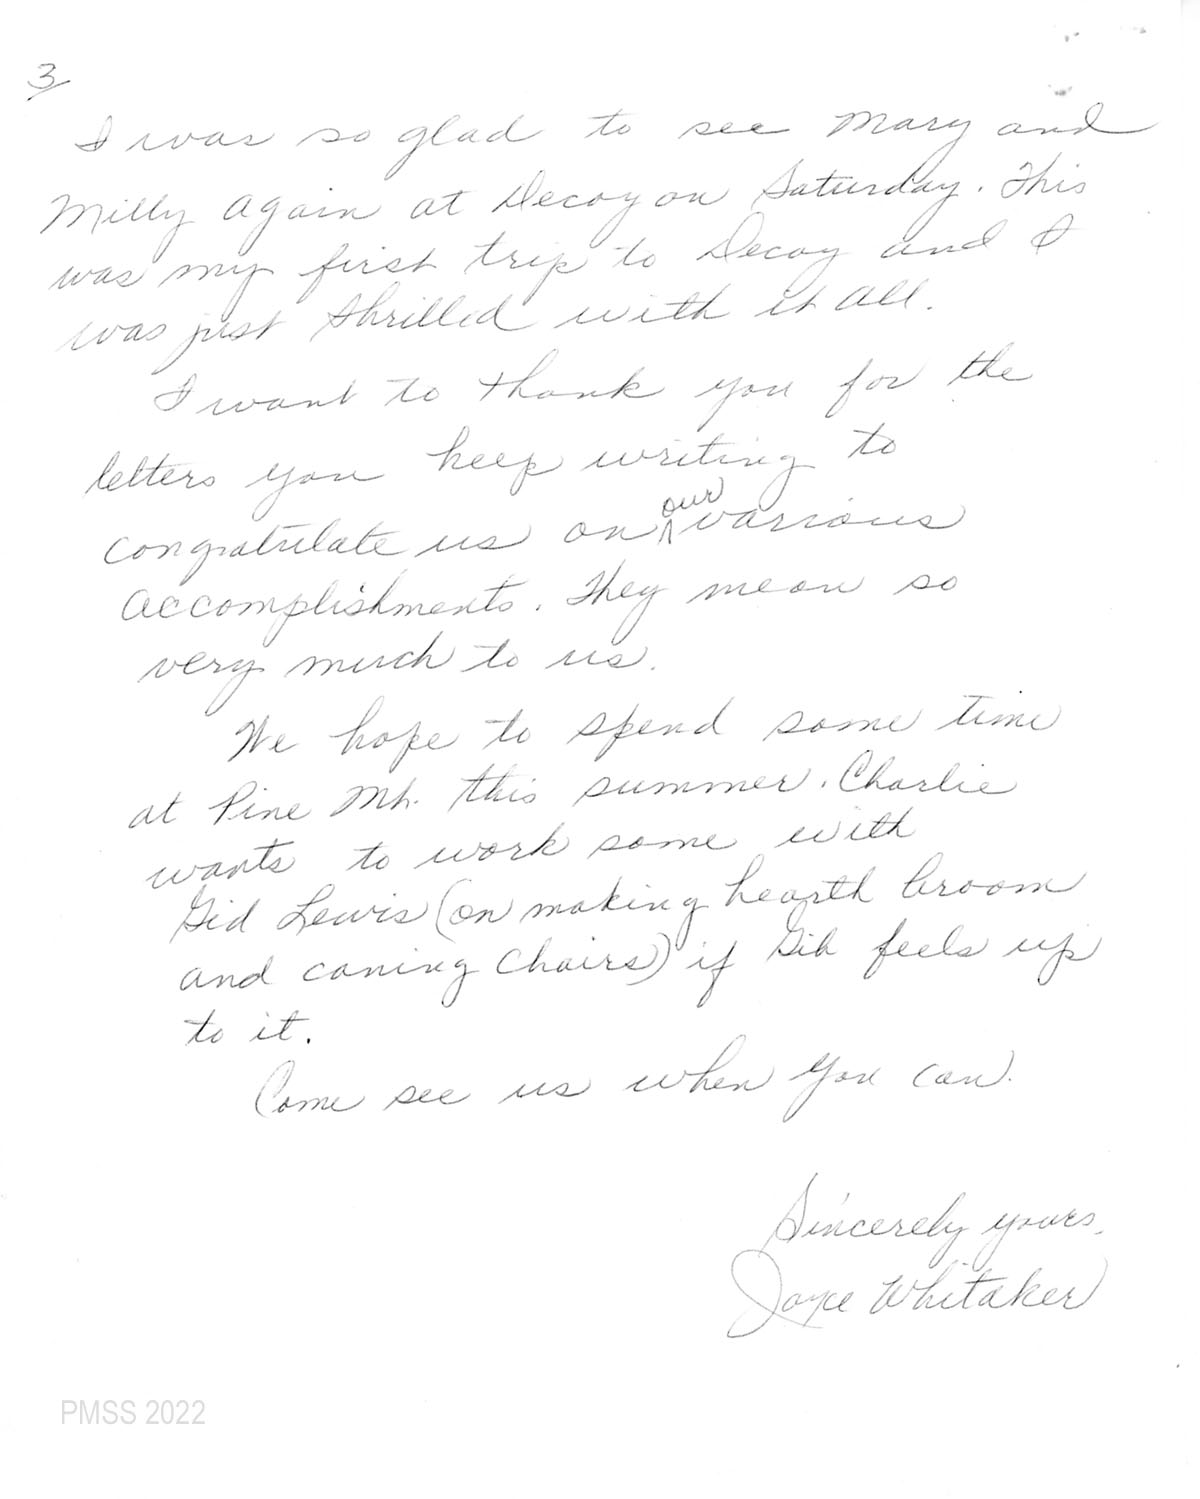 3
I was so glad to see Mary and
Milly again at Decoy on Saturday. This
was my first trip to Decoy and I
was just thrilled with it all.
I want to thank you for the
letters you keep writing to
congratulate us on our various
accomplishments. They mean so
very much to us.
We hope to spend some time
at Pine Mt. this summer. Charlie
wants to work some with
Gid Lewis (on making hearth broom
and caning chairs) if Gib feels up
to it.
Come see us when you can.
Sincerely yours,
Joyce Whitaker
PMSS 2022